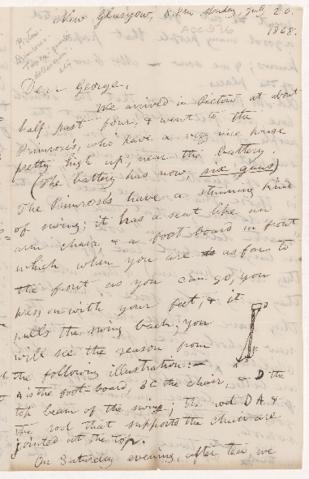 New Glasgow, 8 P.M. Monday, July 20.
1868.
Dear George,
We arrived in Pictou at about
half past four, & went to the
Primroses, who have a very nice house
pretty high up, near the battery.
(The battery has now, six guns)
The Primroses have a stunning kind
of swing; it has a seat like an
arm chair, & a foot-board in front
which when you are as far to
the front as you can go, you
press on with your feet, & it
pulls the swing back; you
will see the reason from
the following illustration:—
A is the foot-board, BC the chair, D the
top beam of the swing; the rod DA &
the rod that supports the chair are
jointed at the top.
On Saturday evening, after tea, we